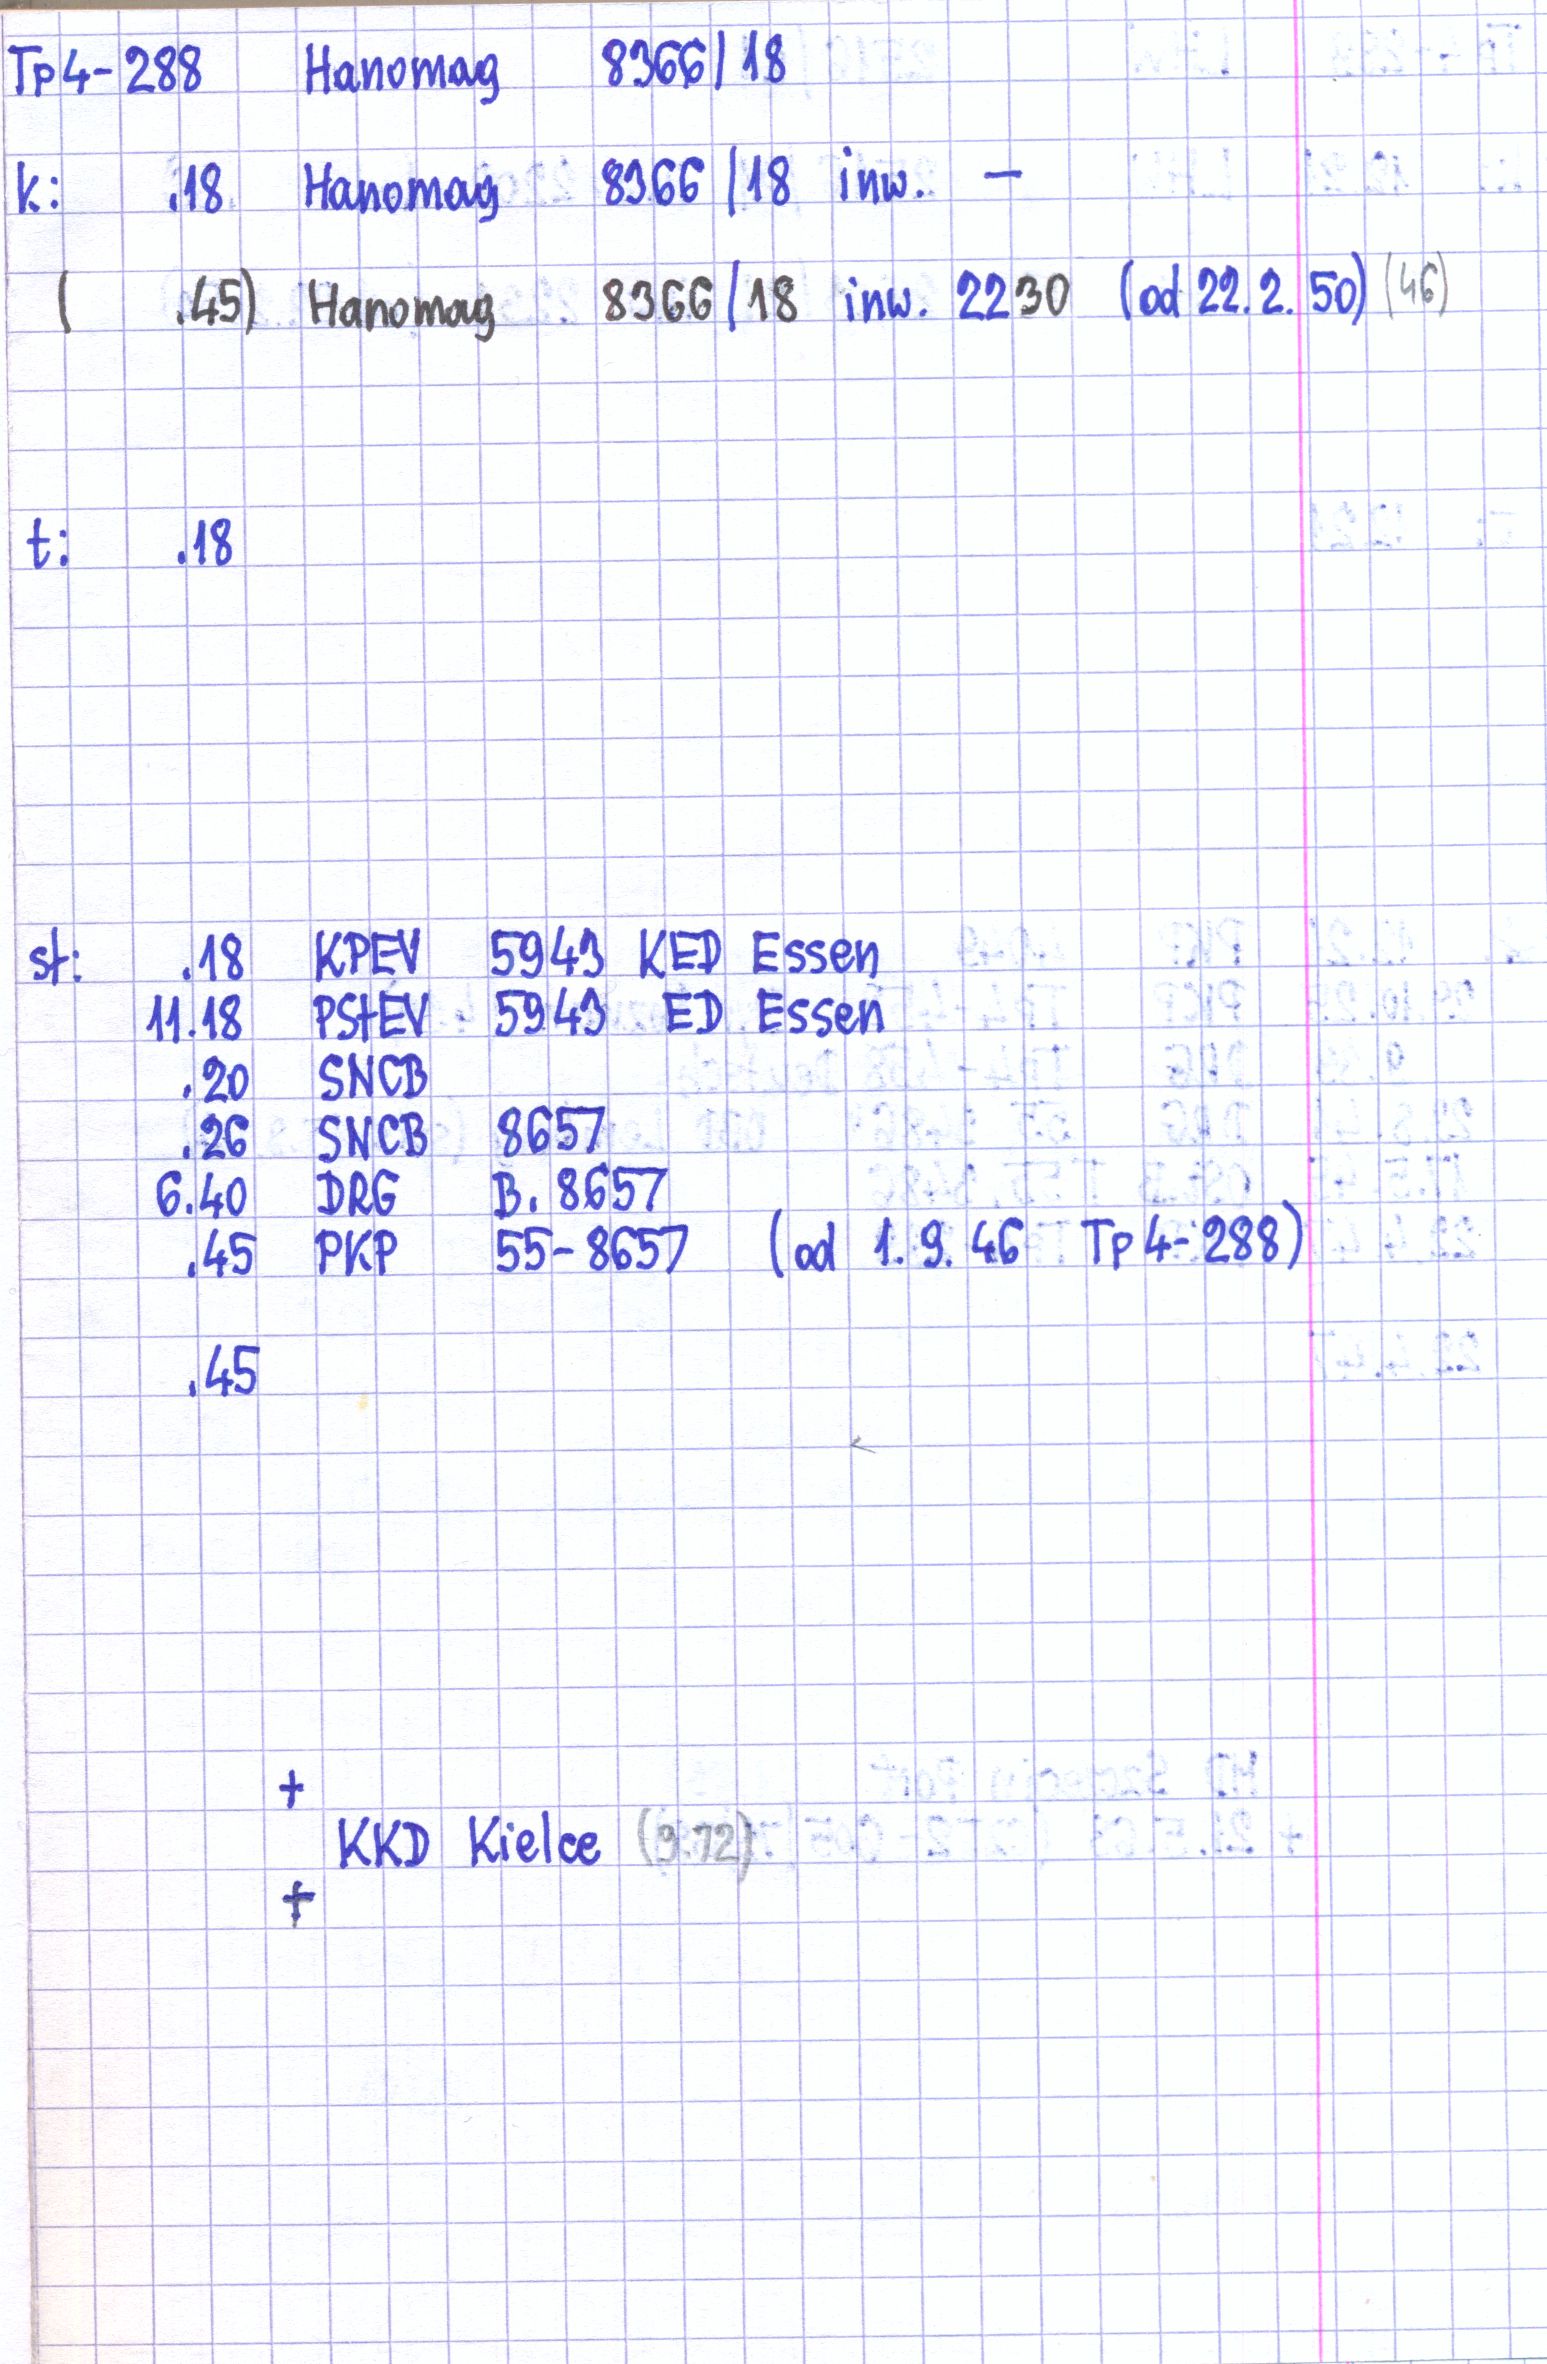 Tp4-288 Hanomag 8366/18
k: .18 Hanomag 8366/18 inw. –
( .45) Hanomag 8366/18 inw. 2230 (od 22.2.50) (46)
t: .18
st: .18 KPEV 5943 KED Essen
11.18 PStEV 5943 ED Essen
.20 SNCB
.26 SNCB 8657
6.40 DRG B. 8657
.45 PKP 55-8657 (od 1.9.46 Tp4-288)
.45
+
KKD Kielce (9.72)
+